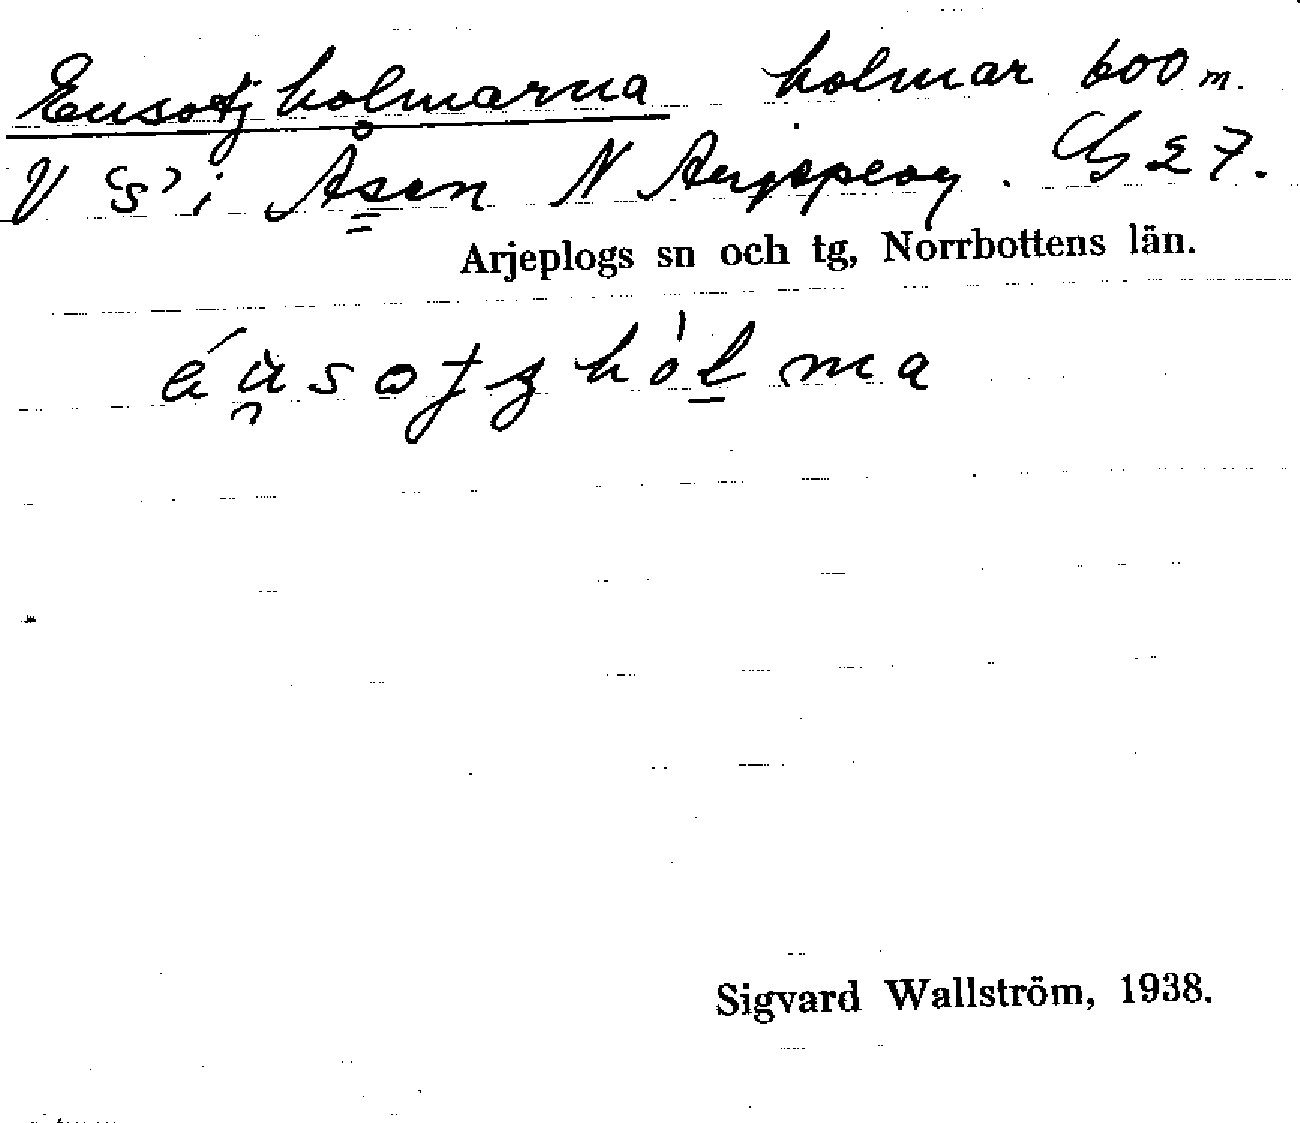 Eusotjholmarna holmar 600 m.
V 's' i Åsen N Arjeplog. G 27.
Arjeplogs sn och tg, Norrbottens län.
Sigvard Wallström, 1938.